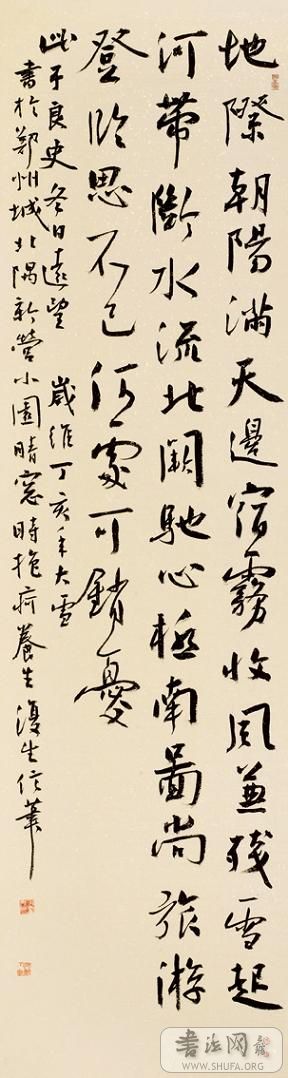 地際朝陽滿天邊宿霧收風兼殘雪起
河帶斷水流北闕馳心極南圖尚旅游
登臨思不已何處可銷憂
此于良史冬日遠望 歲維丁亥年大雪
書於鄭州城北隅新營小園晴窓時抱疴養生復生信筆
書法网
WWW.SHUFA.ORG